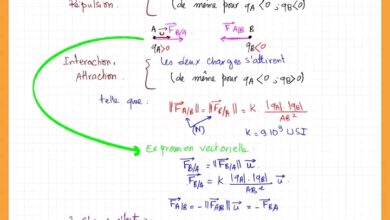 Répulsion.
(de même pour q_A<0 ; q_B<0)
A u F_B/A F_A/B B
q_A>0 q_B<0
Interaction Attraction. { les deux charges s'attirent
(de même pour q_A<0 ; q_B>0)
telle que: ||F_A/B|| = ||F_B/A|| = K. |q_A|.|q_B| / AB²
(N) K = 9.10⁹ USI
Expression vectorielle:
F_B/A = ||F_B/A|| u
F_B/A = K. |q_A|.|q_B| / AB² . u
F_A/B = -||F_A/B|| u = -F_B/A